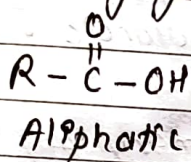 O
||
R - C - OH
Aliphatic